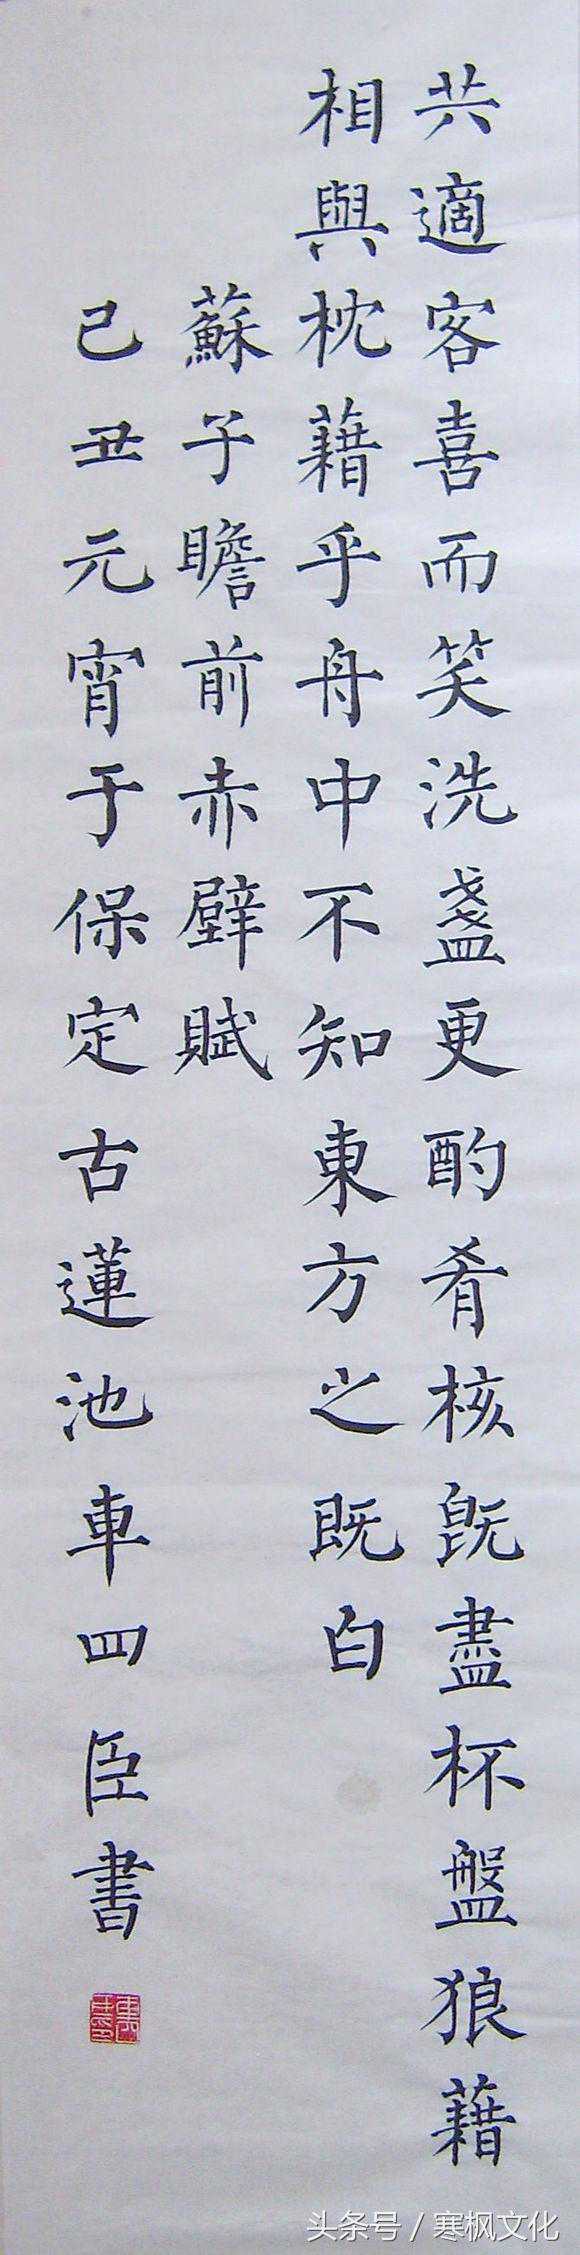 共適客喜而笑洗盞更酌肴核既盡杯盤狼藉
相與枕藉乎舟中不知東方之既白
蘇子瞻前赤壁賦
己丑元宵于保定古蓮池車四臣書
头条号/寒枫文化